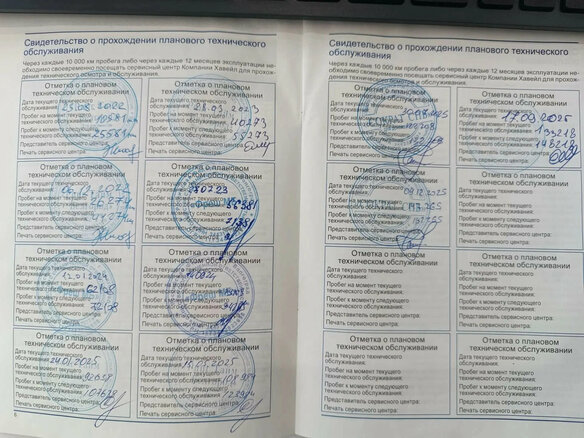 Свидетельство о прохождении планового технического
обслуживания
Через каждые 10 000 км пробега либо через каждые 12 месяцев эксплуатации не-
обходимо своевременно посещать сервисный центр Компании Хавейл для прохож-
дения технического осмотра и обслуживания.
Отметка о плановом
техническом обслуживании
Дата текущего технического
обслуживания: 25.08.2022
Пробег на момент текущего
обслуживания:
Пробег к моменту следующего
технического обслуживания: 25561
Представитель сервисного центра:
Печать сервисного центра:
Отметка о плановом
техническом обслуживании
Дата текущего технического
обслуживания: 28.03.2023
Пробег на момент текущего
обслуживания: 40273
Пробег к моменту следующего
технического обслуживания: 55273
Представитель сервисного центра:
Печать сервисного центра:
Отметка о плановом
техническом обслуживании
Дата текущего технического
обслуживания:
Пробег на момент текущего
обслуживания:
Пробег к моменту следующего
технического обслуживания:
Представитель сервисного центра:
Печать сервисного центра:
Отметка о плановом
техническом обслуживании
Дата текущего технического
обслуживания:
Пробег на момент текущего
обслуживания:
Пробег к моменту следующего
технического обслуживания:
Представитель сервисного центра:
Печать сервисного центра:
Отметка о плановом
техническом обслуживании
Дата текущего технического
обслуживания:
Пробег на момент текущего
обслуживания: 62108
Пробег к моменту следующего
технического обслуживания: 72108
Представитель сервисного центра:
Печать сервисного центра:
Отметка о плановом
техническом обслуживании
Дата текущего технического
обслуживания:
Пробег на момент текущего
обслуживания:
Пробег к моменту следующего
технического обслуживания:
Представитель сервисного центра:
Печать сервисного центра:
Отметка о плановом
техническом обслуживании
Дата текущего технического
обслуживания: 24.01.2025
Пробег на момент текущего
обслуживания: 92658
Пробег к моменту следующего
технического обслуживания:
Представитель сервисного центра:
Печать сервисного центра:
Отметка о плановом
техническом обслуживании
Дата текущего технического
обслуживания: 15.05.2025
Пробег на момент текущего
обслуживания:
Пробег к моменту следующего
технического обслуживания:
Представитель сервисного центра:
Печать сервисного центра:
6
Свидетельство о прохождении планового технического
обслуживания
Через каждые 10 000 км пробега либо через каждые 12 месяцев эксплуатации не-
обходимо своевременно посещать сервисный центр Компании Хавейл для прохож-
дения технического осмотра и обслуживания.
Отметка о плановом
техническом обслуживании
Дата текущего технического
обслуживания:
Пробег на момент текущего
обслуживания:
Пробег к моменту следующего
технического обслуживания:
Представитель сервисного центра:
Печать сервисного центра:
Отметка о плановом
техническом обслуживании
Дата текущего технического
обслуживания:
Пробег на момент текущего
обслуживания: 133218
Пробег к моменту следующего
технического обслуживания: 148218
Представитель сервисного центра:
Печать сервисного центра:
Отметка о плановом
техническом обслуживании
Дата текущего технического
обслуживания: 09.12.2025
Пробег на момент текущего
обслуживания:
Пробег к моменту следующего
технического обслуживания:
Представитель сервисного центра:
Печать сервисного центра:
Отметка о плановом
техническом обслуживании
Дата текущего технического
обслуживания:
Пробег на момент текущего
обслуживания:
Пробег к моменту следующего
технического обслуживания:
Представитель сервисного центра:
Печать сервисного центра:
Отметка о плановом
техническом обслуживании
Дата текущего технического
обслуживания:
Пробег на момент текущего
обслуживания:
Пробег к моменту следующего
технического обслуживания:
Представитель сервисного центра:
Печать сервисного центра:
Отметка о плановом
техническом обслуживании
Дата текущего технического
обслуживания:
Пробег на момент текущего
обслуживания:
Пробег к моменту следующего
технического обслуживания:
Представитель сервисного центра:
Печать сервисного центра:
Отметка о плановом
техническом обслуживании
Дата текущего технического
обслуживания:
Пробег на момент текущего
обслуживания:
Пробег к моменту следующего
технического обслуживания:
Представитель сервисного центра:
Печать сервисного центра:
Отметка о плановом
техническом обслуживании
Дата текущего технического
обслуживания:
Пробег на момент текущего
обслуживания:
Пробег к моменту следующего
технического обслуживания:
Представитель сервисного центра:
Печать сервисного центра: